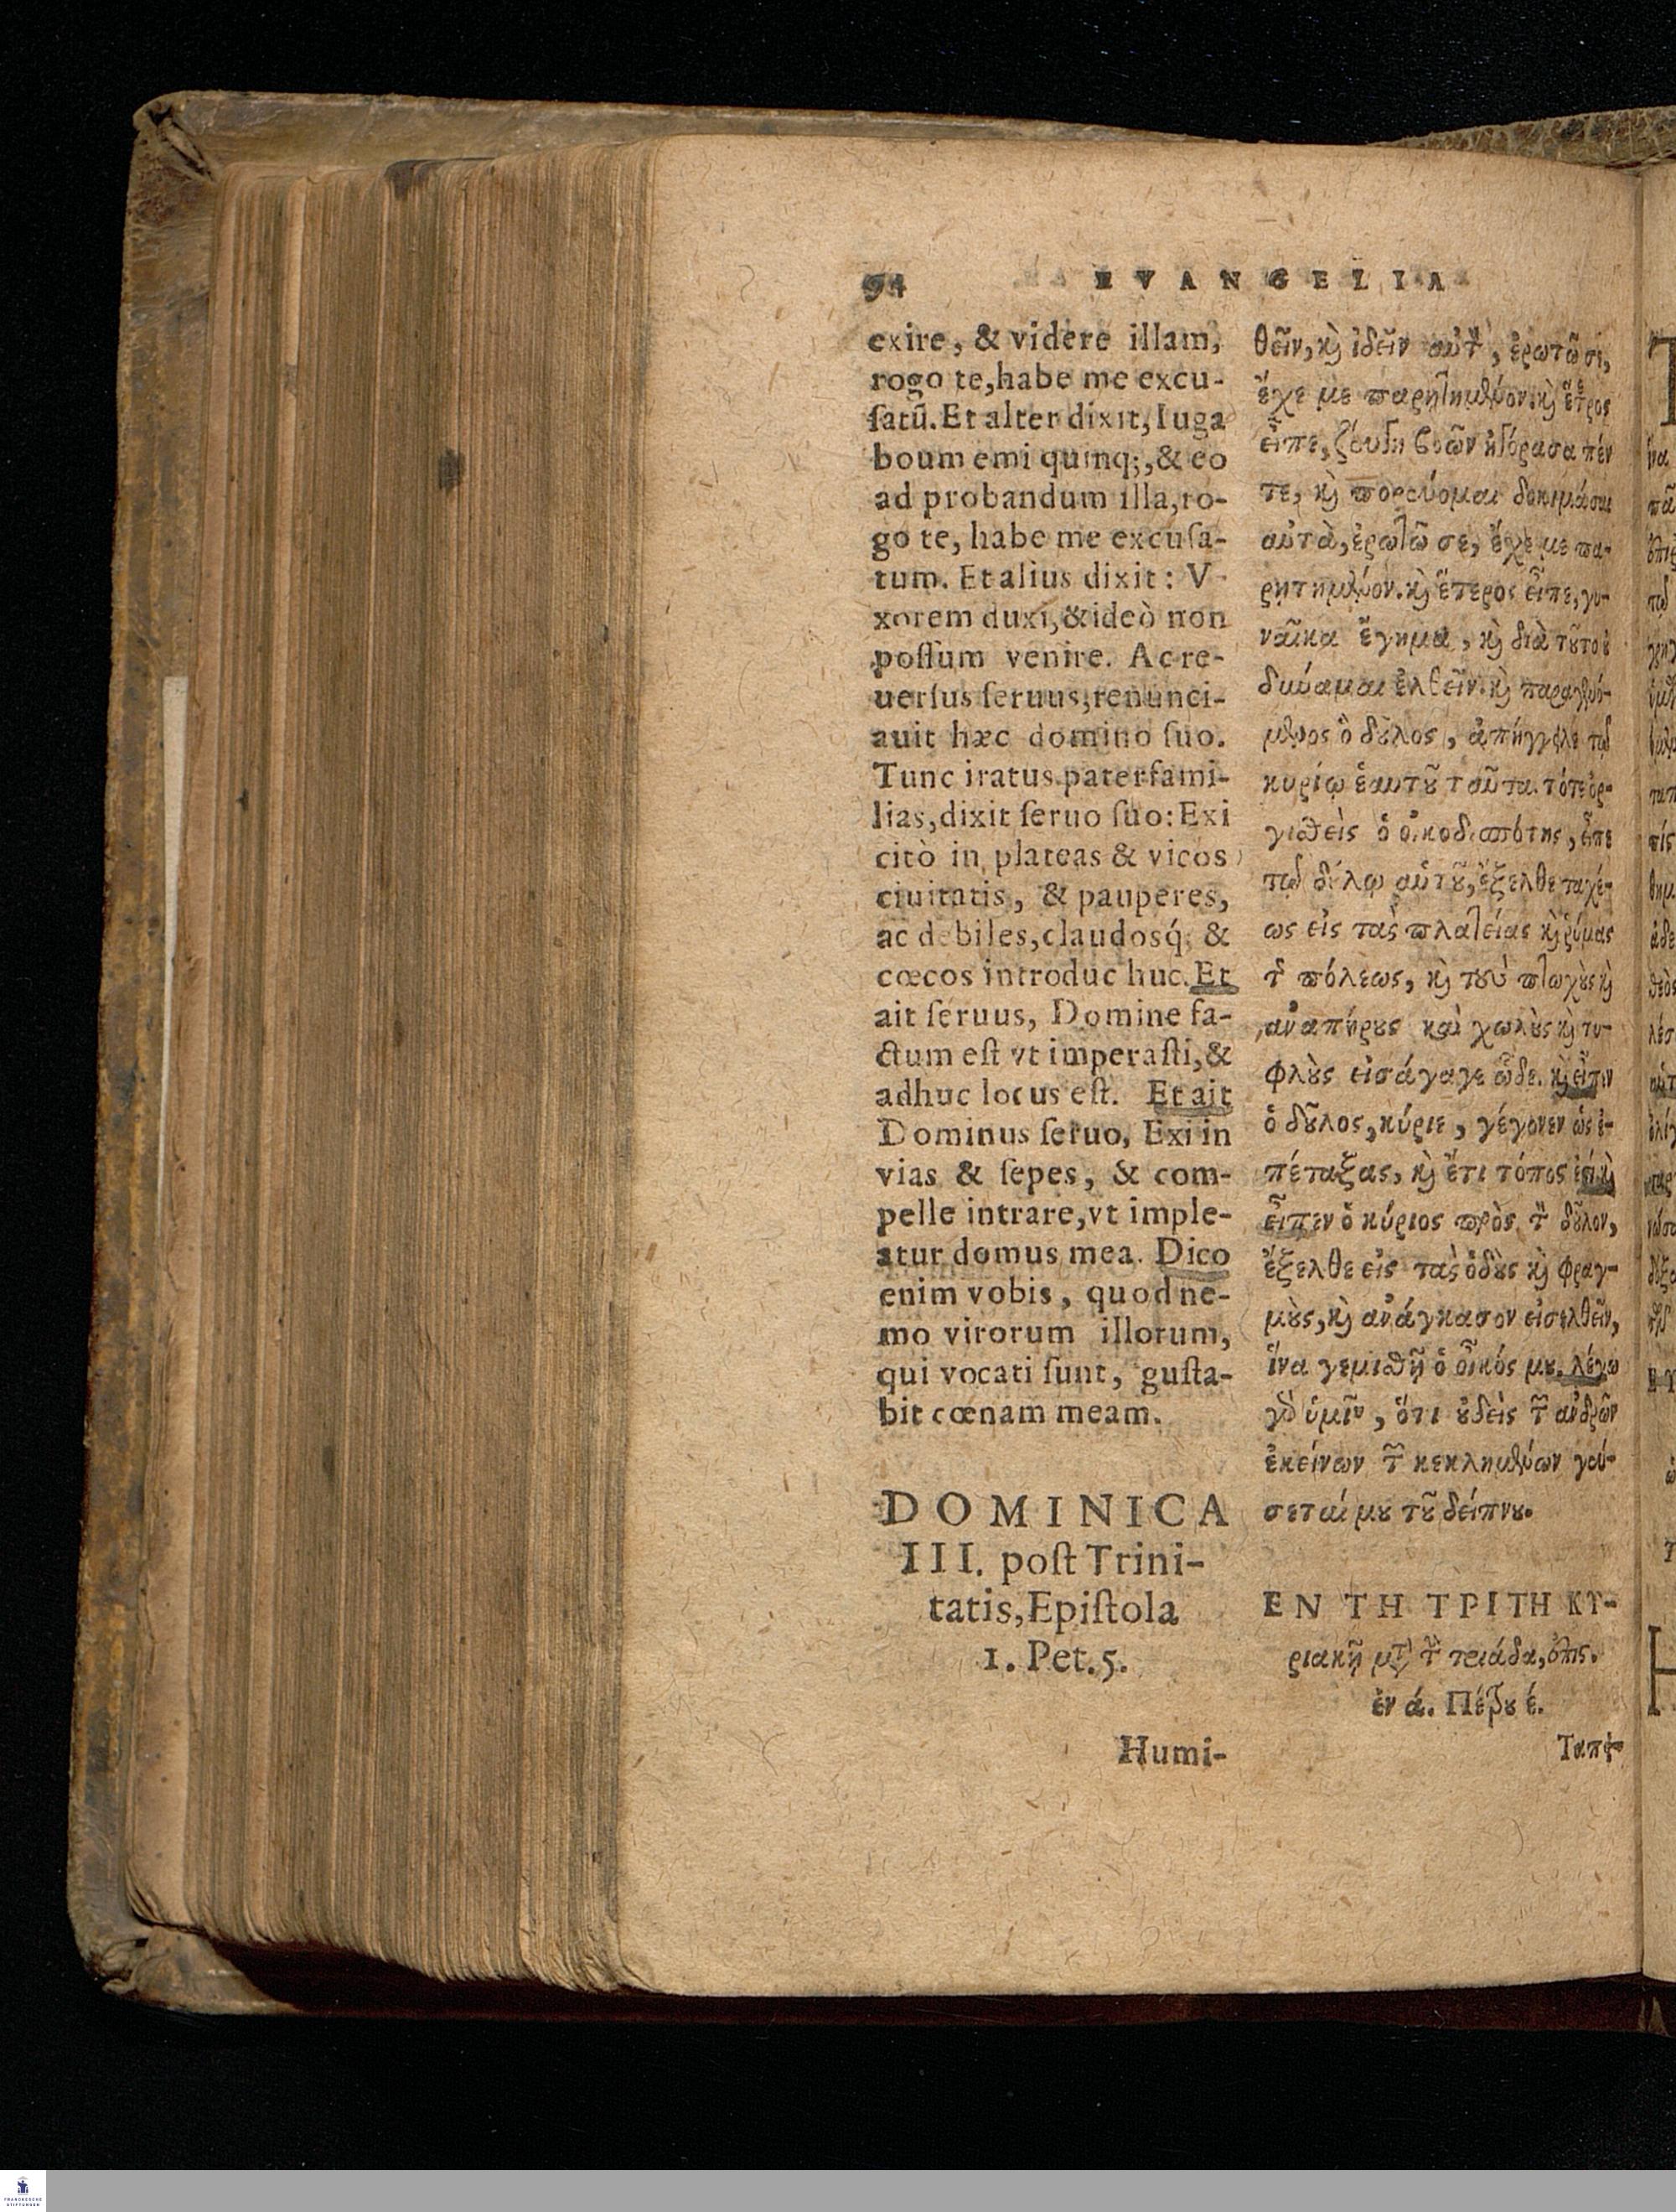 94 EVANGELIA
exire, & videre illam,
rogo te, habe me excu-
ſatū. Et alter dixit, Iuga
boum emi quinq;, & eo
ad probandum illa, ro-
go te, habe me excuſa-
tum. Et alius dixit: V-
xorem duxi, & ideò non
poſſum venire. Ac re-
uerſus ſeruus, renunci-
auit hæc domino ſuo.
Tunc iratus paterfami-
lias, dixit ſeruo ſuo: Exi
citò in plateas & vicos
ciuitatis, & pauperes,
ac debiles, claudosq́; &
cœcos introduc huc. Et
ait ſeruus, Domine fa-
ctum eſt vt imperaſti, &
adhuc locus eſt. Et ait
Dominus ſeruo, Exi in
vias & ſepes, & com-
pelle intrare, vt imple-
atur domus mea. Dico
enim vobis, quod ne-
mo virorum illorum,
qui vocati ſunt, guſta-
bit cœnam meam.
DOMINICA
III. poſt Trini-
tatis, Epiſtola
1. Pet. 5.
Humi-
θεῖν, ϗ ἰδεῖν αὐτὸν, ἐρωτῶ σε,
ἔχε με παρῃτημένον. ϗ ἕτερος
εἶπε, ζεύγη βοῶν ἠγόρασα πέν
τε, ϗ πορεύομαι δοκιμάσαι
αὐτὰ, ἐρωτῶ σε, ἔχε με πα-
ρητημένον. ϗ ἕτερος εἶπε, γυ-
ναῖκα ἔγημα, ϗ διὰ τȣ͂το ȣ
δύναμαι ἐλθεῖν. ϗ παραγενό-
μενος ὁ δȣ͂λος, ἀπήγγειλε τῷ
κυρίῳ ἑαυτȣ͂ ταῦτα. τότε ὀρ-
γισθεὶς ὁ οἰκοδεσπότης, εἶπε
τῷ δȣ́λῳ αὑτȣ͂, ἔξελθε ταχέ-
ως εἰς τὰς πλατείας ϗ ῥύμας
τῆς πόλεως, ϗ τοὺς πτωχȣ̀ς ϗ
ἀναπήρȣς καὶ χωλȣ̀ς ϗ τυ-
φλȣ̀ς εἰσάγαγε ὧδε. ϗ εἶπεν
ὁ δȣ͂λος, κύριε, γέγονεν ὡς ἐ-
πέταξας, ϗ ἔτι τόπος ἐστί. ϗ
εἶπεν ὁ κύριος πρὸς τὸν δȣ͂λον,
ἔξελθε εἰς τὰς ὁδȣ̀ς ϗ φραγ-
μȣ̀ς, ϗ ἀνάγκασον εἰσελθεῖν,
ἵνα γεμισθῇ ὁ οἶκός μȣ. λέγω
γὰρ ὑμῖν, ὅτι ȣ̓δεὶς τῶν ἀνδρῶν
ἐκείνων τῶν κεκλημένων γεύ-
σεταί μȣ τȣ͂ δείπνȣ.
ΕΝ ΤΗ ΤΡΙΤΗ ΚΥ-
ριακῇ μετὰ τὴν τριάδα, ἐπις.
ἐν ά. Πέτρȣ έ.
Ταπει-
FRANCKESCHE
STIFTUNGEN